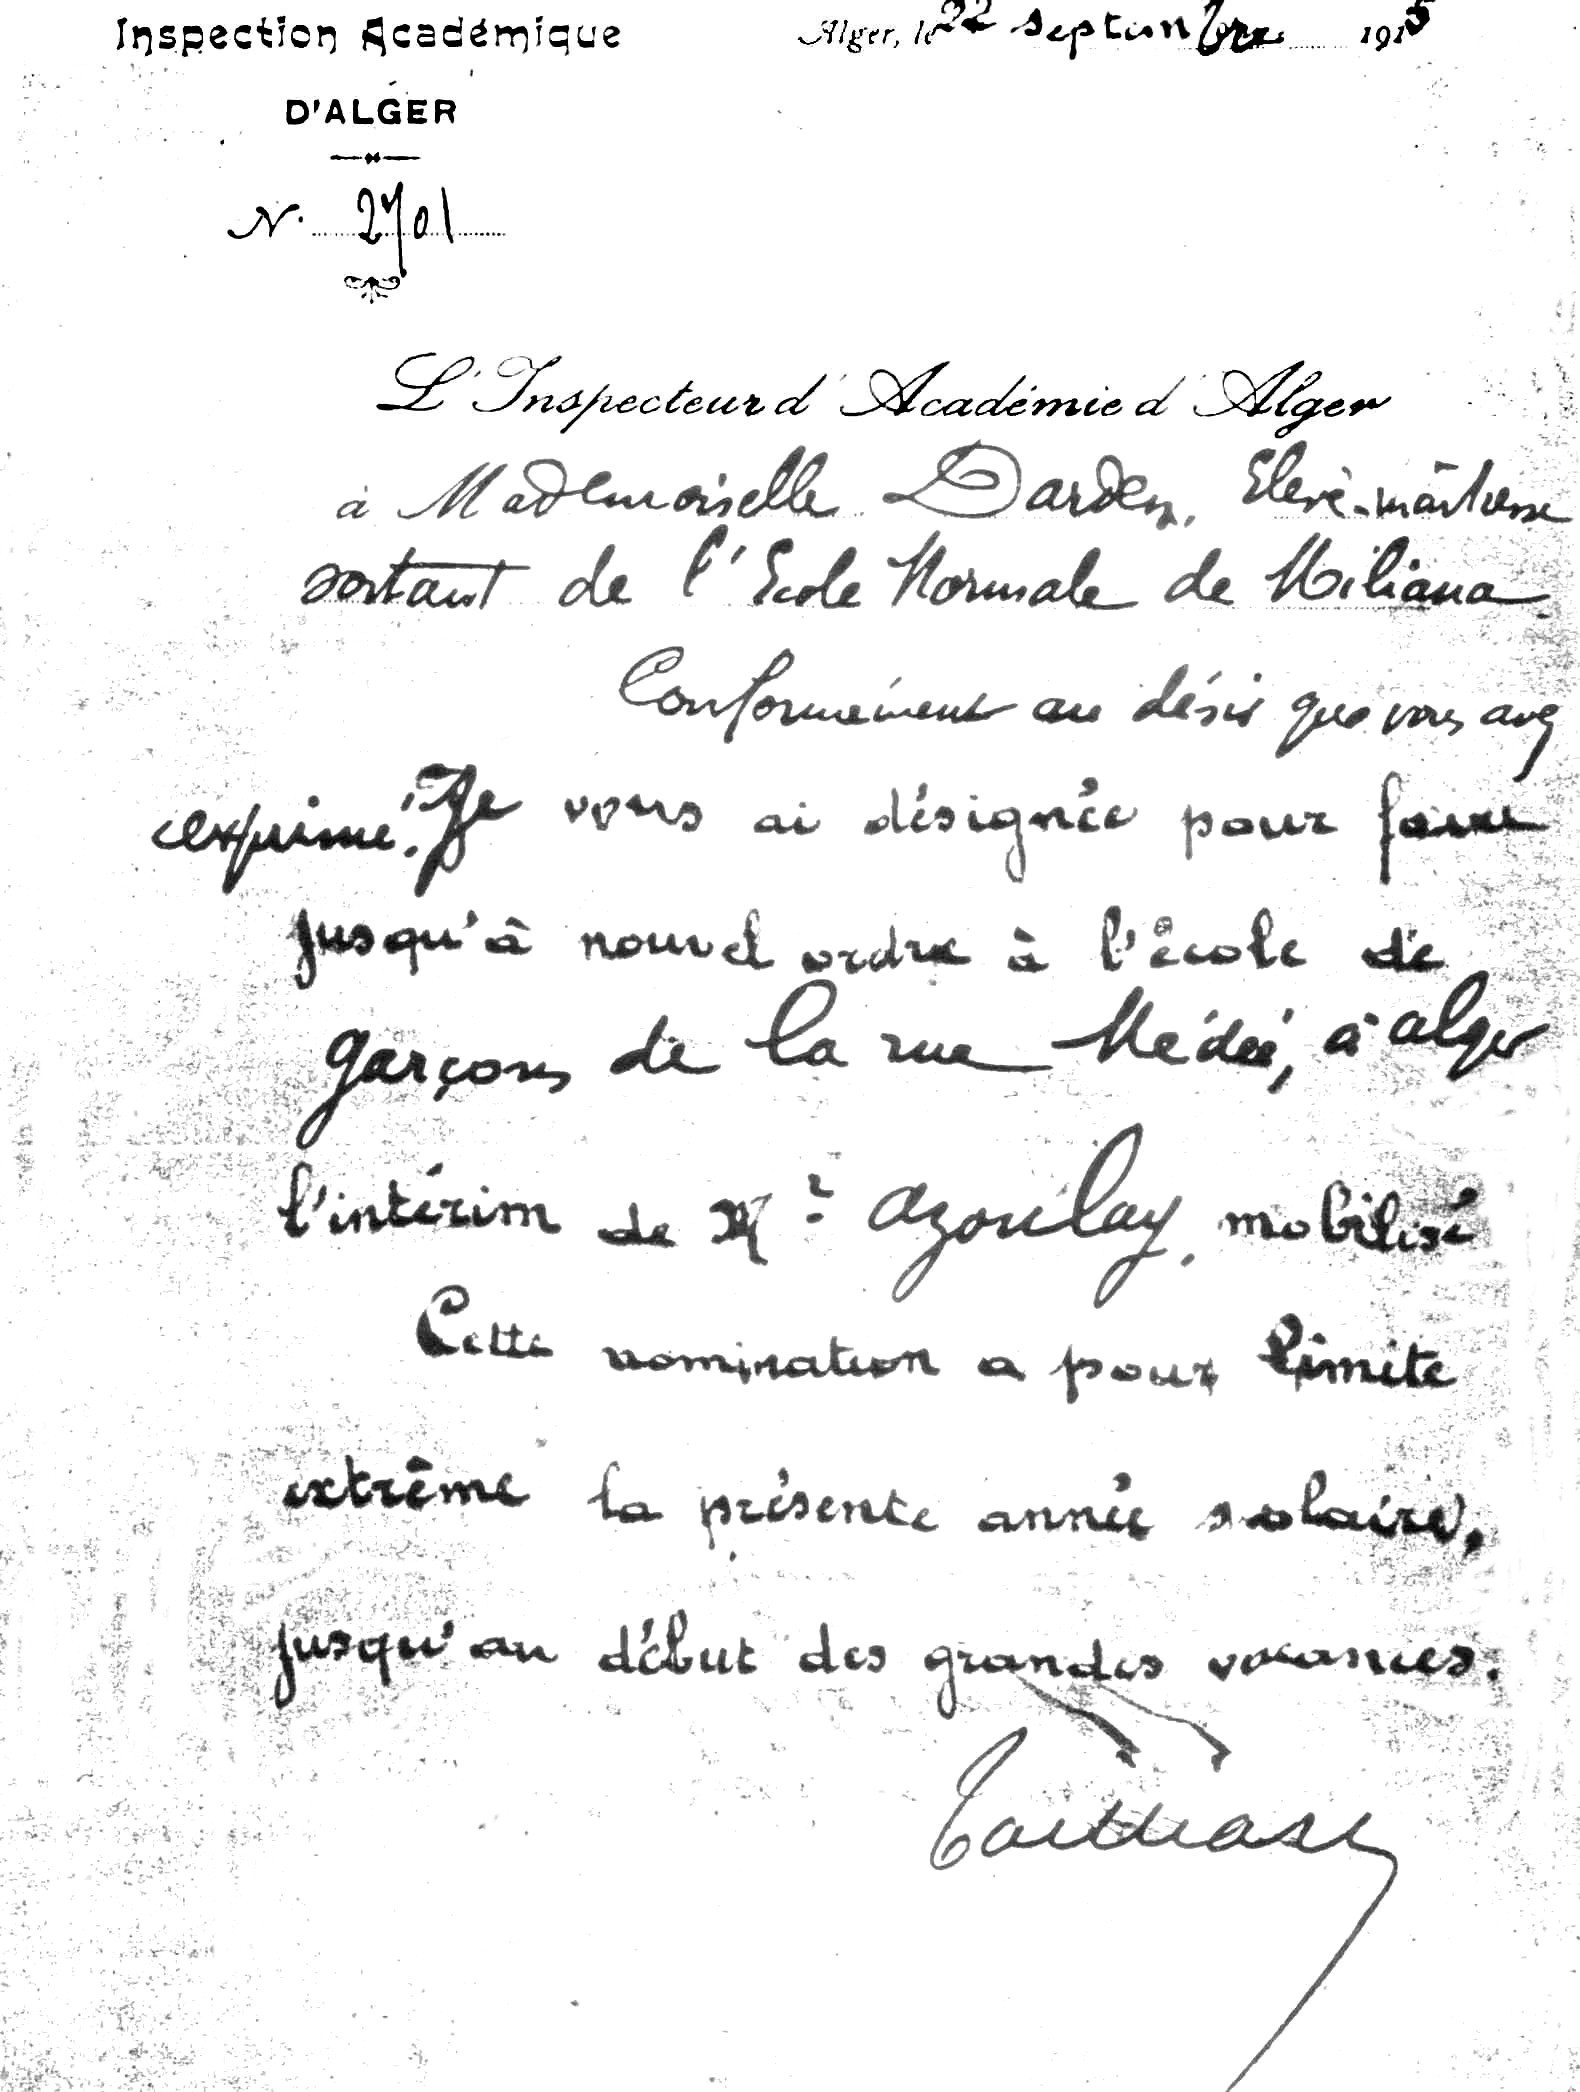 Inspection Académique
Alger, le 22 septembre 1915
D'ALGER
N. 2701
L'Inspecteur d'Académie d'Alger
à Mademoiselle Darden, Elève-maîtresse
sortant de l'Ecole Normale de Miliana
Conformément au désir que vous avez
exprimé, Je vous ai désignée pour faire
jusqu'à nouvel ordre à l'école de
garçons de la rue Médée, à Alger
l'intérim de Mr Azoulay, mobilisé
Cette nomination a pour limite
extrême la présente année scolaire,
jusqu'au début des grandes vacances.